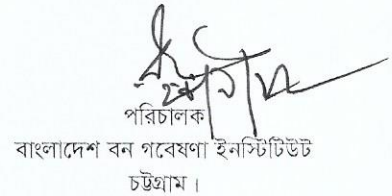 পরিচালক
বাংলাদেশ বন গবেষণা ইনস্টিটিউট
চট্টগ্রাম।